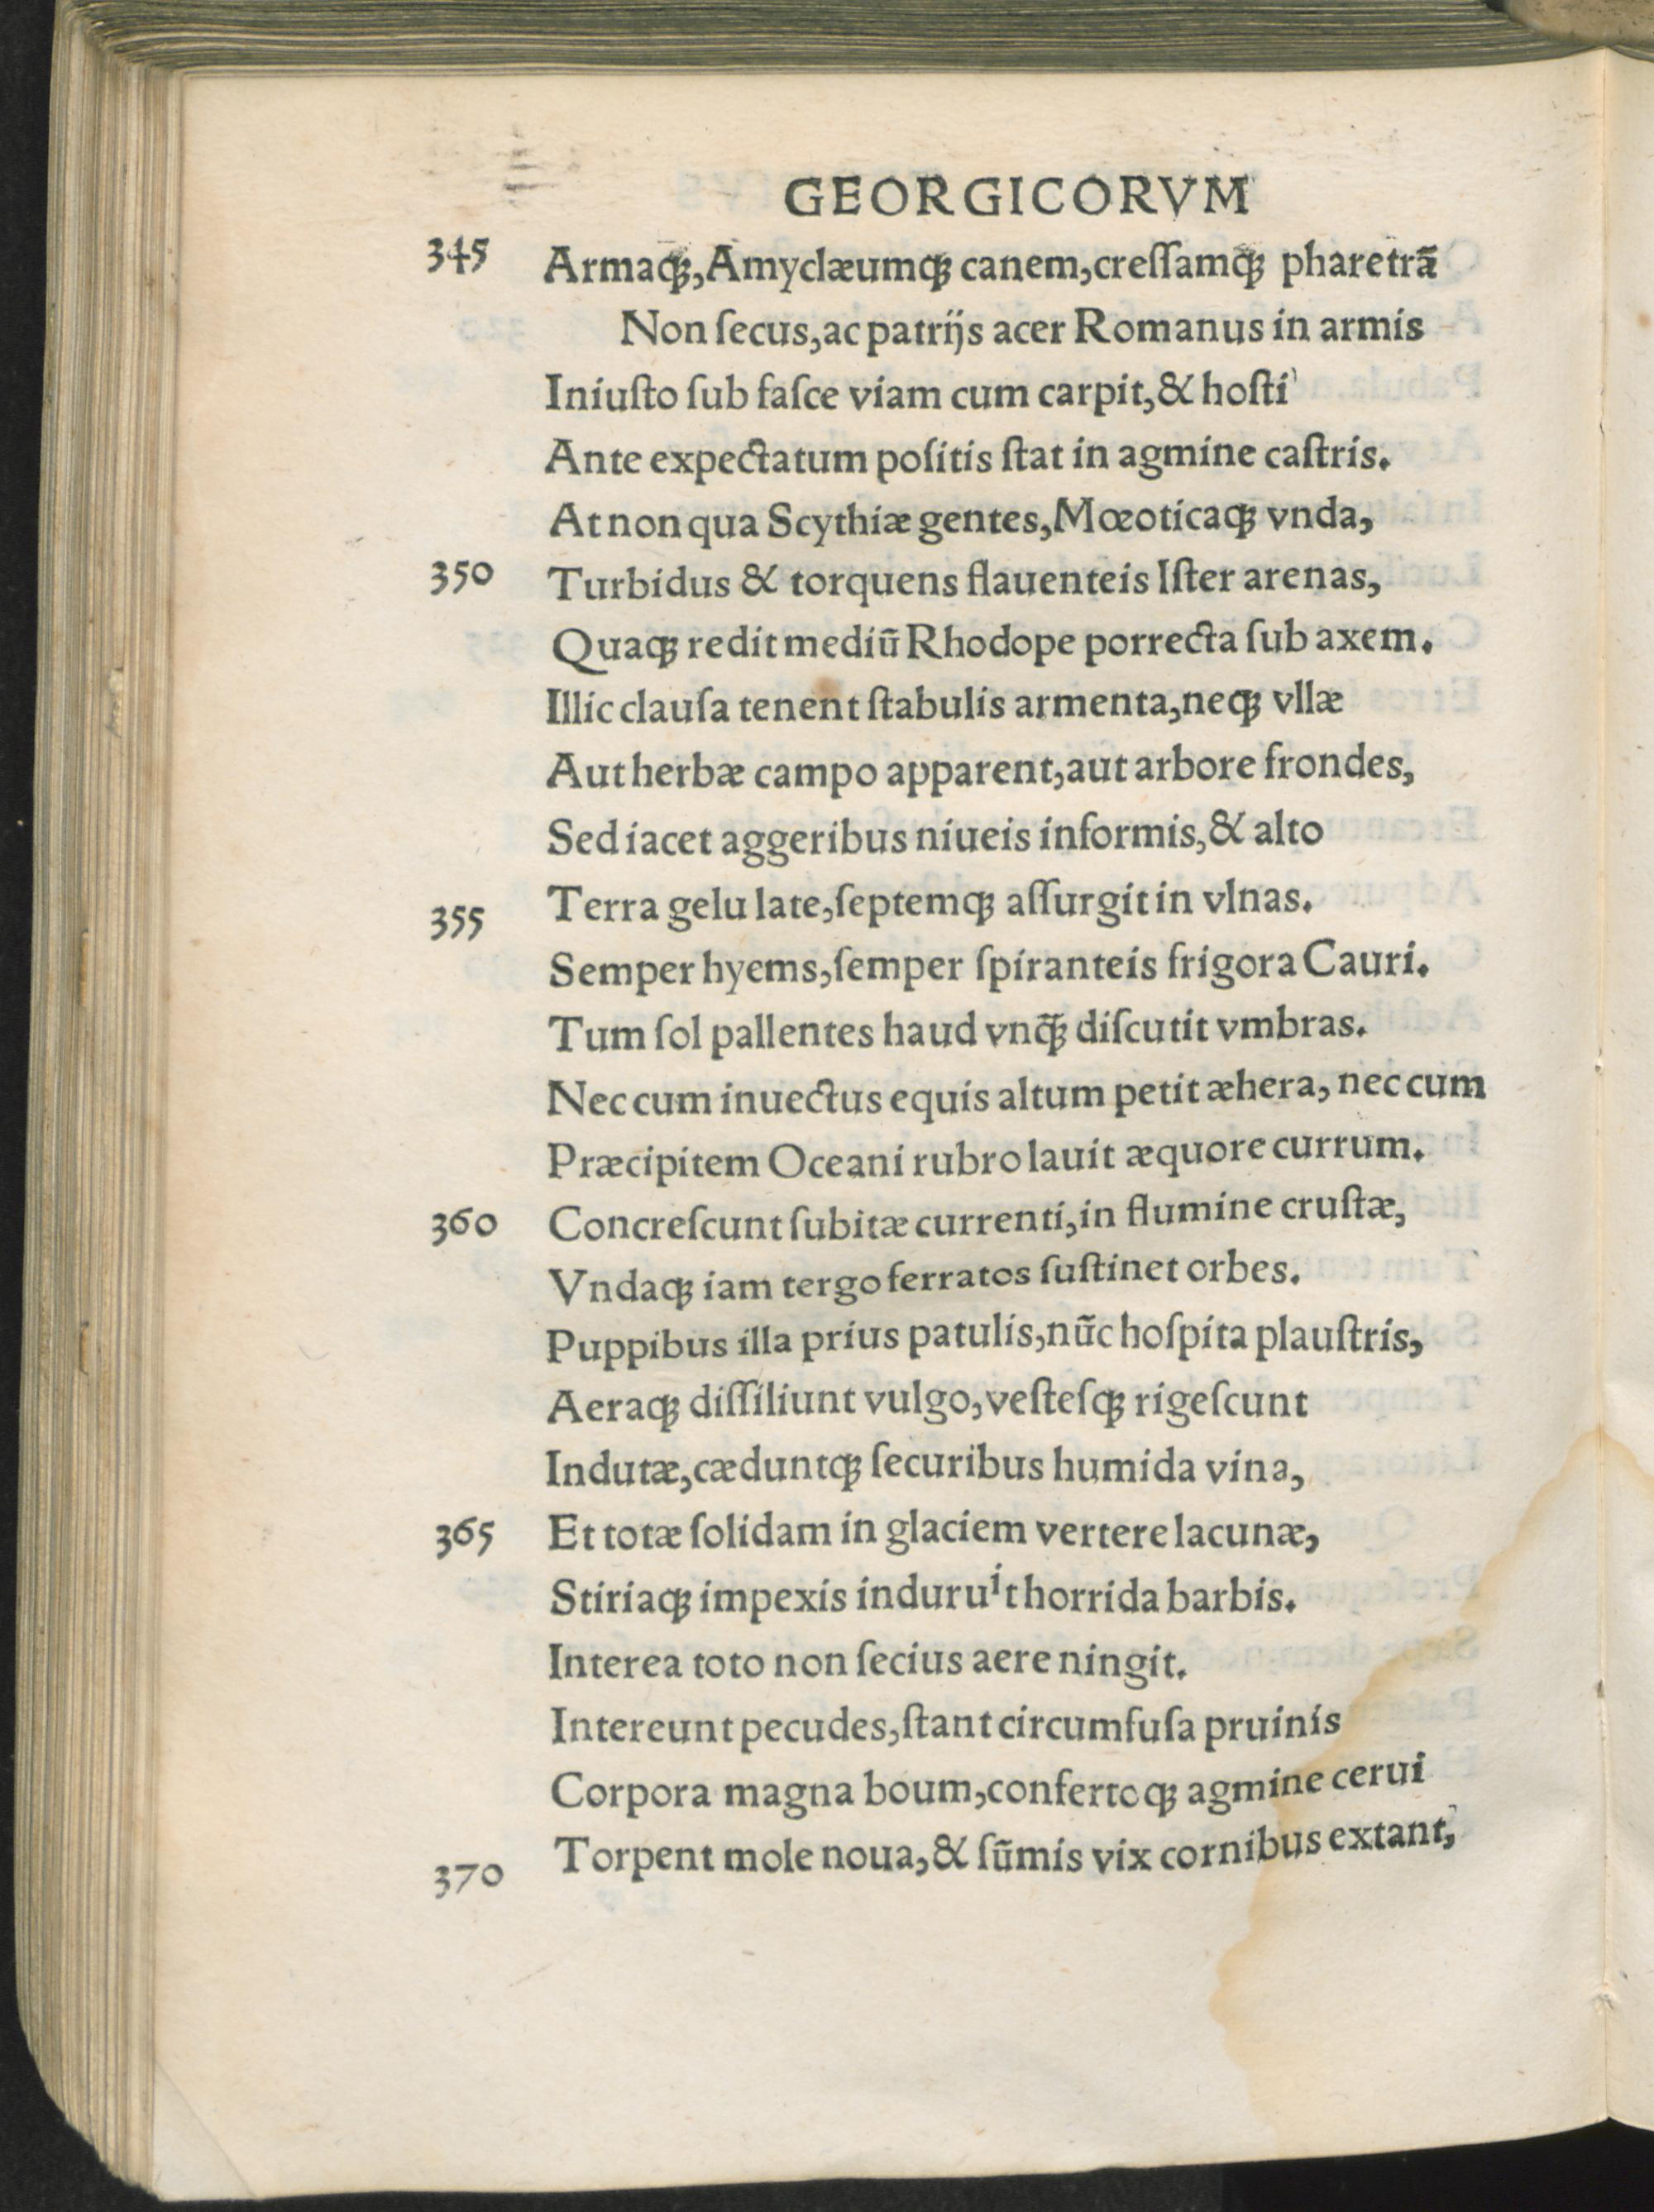 GEORGICORVM
345 Armaqꝫ,Amyclæumqꝫ canem,creſſamqꝫ pharetrã
Non ſecus,ac patrijs acer Romanus in armis
Iniuſto ſub faſce viam cum carpit,& hoſti
Ante expectatum poſitis ſtat in agmine caſtris.
At non qua Scythiæ gentes,Mœoticaqꝫ vnda,
350 Turbidus & torquens flauenteis Iſter arenas,
Quaqꝫ redit mediũ Rhodope porrecta ſub axem.
Illic clauſa tenent ſtabulis armenta,neqꝫ vllæ
Aut herbæ campo apparent,aut arbore frondes,
Sed iacet aggeribus niueis informis,& alto
355 Terra gelu late,ſeptemqꝫ aſſurgit in vlnas.
Semper hyems,ſemper ſpiranteis frigora Cauri.
Tum ſol pallentes haud vnq̃ꝫ diſcutit vmbras.
Nec cum inuectus equis altum petit æhera, nec cum
Præcipitem Oceani rubro lauit æquore currum.
360 Concreſcunt ſubitæ currenti,in flumine cruſtæ,
Vndaqꝫ iam tergo ferratos ſuſtinet orbes.
Puppibus illa prius patulis,nũc hoſpita plauſtris,
Aeraqꝫ diſſiliunt vulgo,veſteſqꝫ rigeſcunt
Indutæ,cæduntqꝫ ſecuribus humida vina,
365 Et totæ ſolidam in glaciem vertere lacunæ,
Stiriaqꝫ impexis induruit horrida barbis.
Interea toto non ſecius aere ningit.
Intereunt pecudes,ſtant circumfuſa pruinis
Corpora magna boum,confertoqꝫ agmine cerui
370 Torpent mole noua,& ſũmis vix cornibus extant,